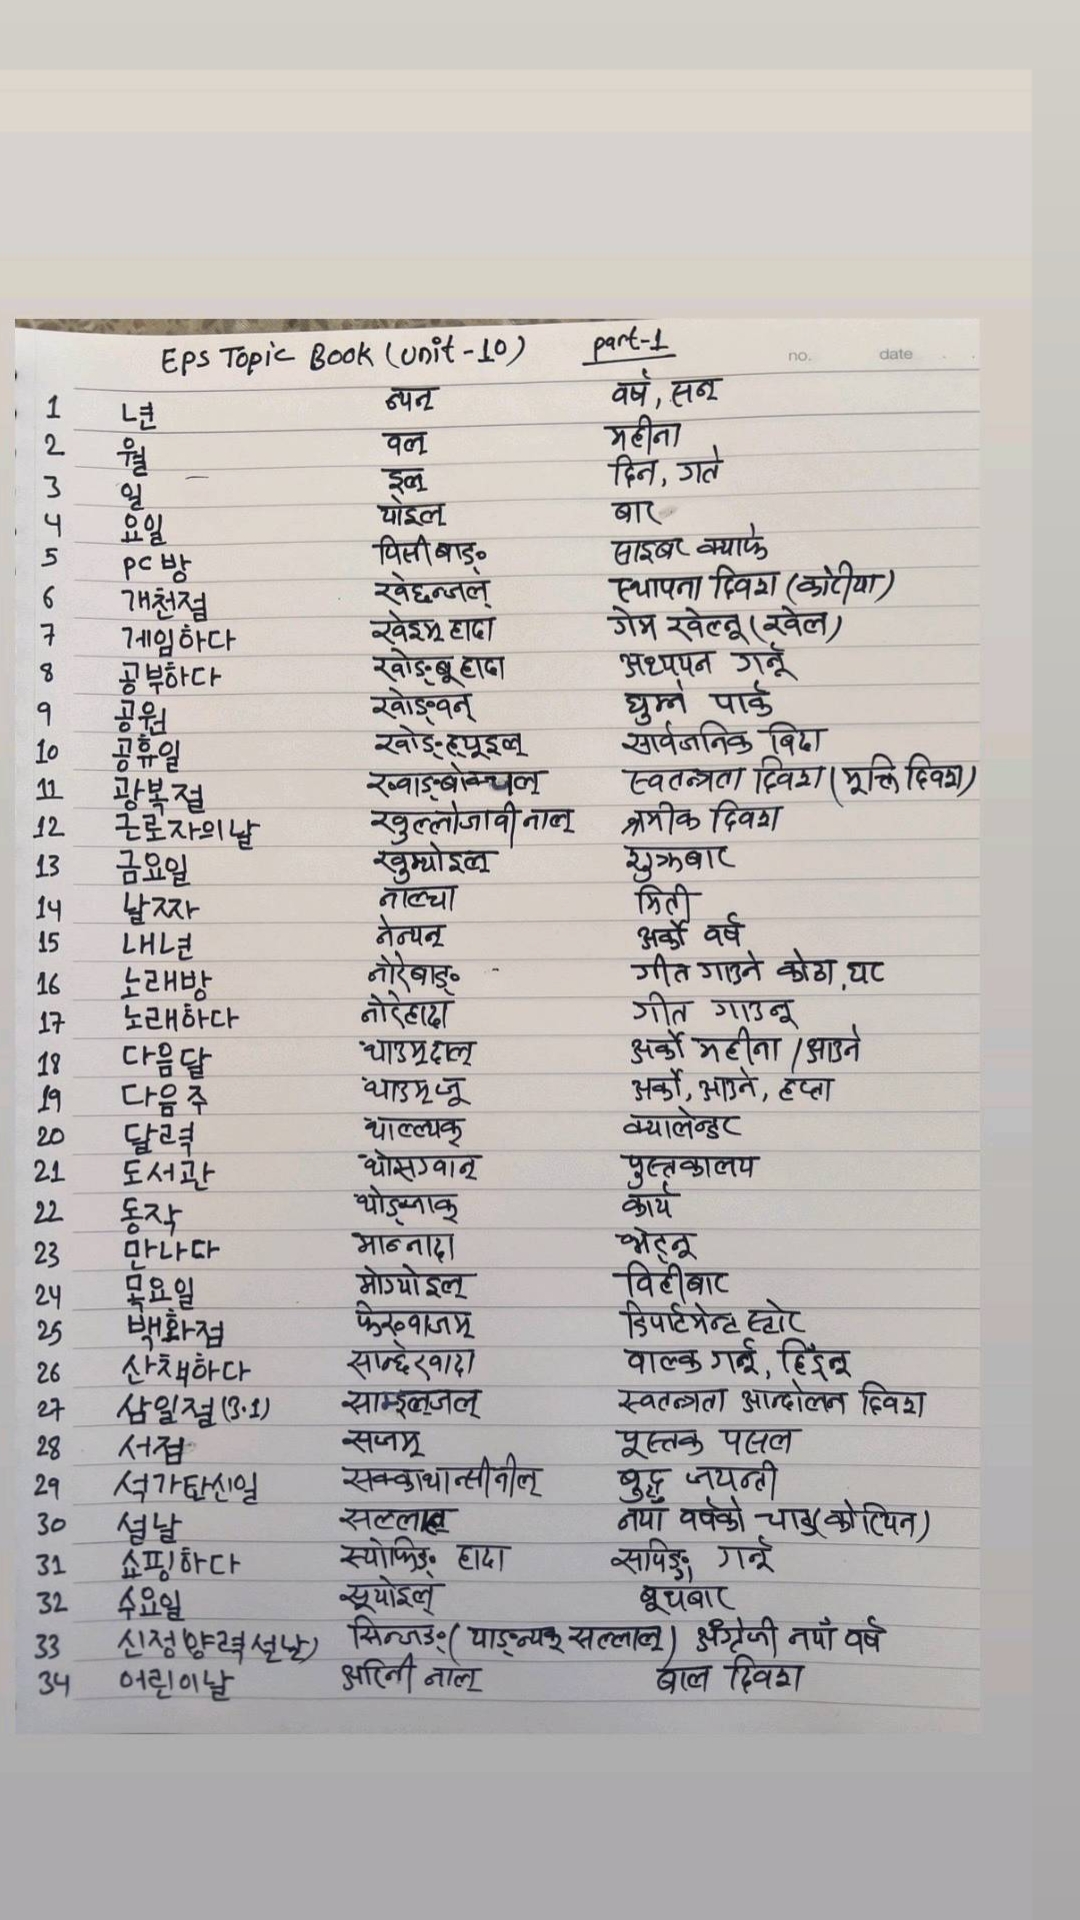 EPS Topic Book (Unit-10) part-1
no. date
1 년 न्यन् वर्ष, सन्
2 월 वल् महीना
3 일 इल् दिन, गते
4 요일 योइल् बार
5 PC방 पिसीबाङ् साइबर क्याफे
6 개천절 खेछन्जल् स्थापना दिवश (कोरीया)
7 게임하다 खेइम् हादा गेम खेल्नू (खेल)
8 공부하다 खोङ्बू हादा अध्ययन गर्नू
9 공원 खोङ्वन् घुम्ने पार्क
10 공휴일 खोङ्ह्यूइल् सार्वजनिक बिदा
11 광복절 ख्वाङ्बोक्च्यल् स्वतन्त्रता दिवश (मूक्ति दिवश)
12 근로자의날 खुल्लोजावी नाल् श्रमीक दिवश
13 금요일 खुम्योइल् शुक्रबार
14 날짜 नाल्चा मिती
15 내년 नेन्यन् अर्को वर्ष
16 노래방 नोरेबाङ् गीत गाउने कोठा, घर
17 노래하다 नोरेहादा गीत गाउनू
18 다음달 थाउम्दाल् अर्को महीना / आउने
19 다음주 थाउम्जू अर्को, आउने, हप्ता
20 달력 थाल्ल्यक् क्यालेन्डर
21 도서관 थोसग्वान् पुस्तकालय
22 동작 थोङ्जाक् कार्य
23 만나다 मान्नादा भेट्नू
24 목요일 मोग्योइल् विहीबार
25 백화점 फेख्वाजम् डिपार्टमेन्ट स्टोर
26 산책하다 सान्छेखादा वाल्क गर्नू, हिँड्नू
27 삼일절(3.1) साम्इल्जल् स्वतन्त्रता आन्दोलन दिवश
28 서점 सजम् पूस्तक पसल
29 석가탄신일 सक्काथान्सीनील् बुद्ध जयन्ती
30 설날 सल्लाल् नयाँ वर्षको चाड (कोरियन)
31 쇼핑하다 स्योफिङ् हादा सपिङ् गर्नू
32 수요일 सूयोइल् बूधबार
33 신정(양력설날) सिन्जङ् (याङ्न्यक् सल्लाल्) अंग्रेजी नयाँ वर्ष
34 어린이날 अरिनी नाल् बाल दिवश